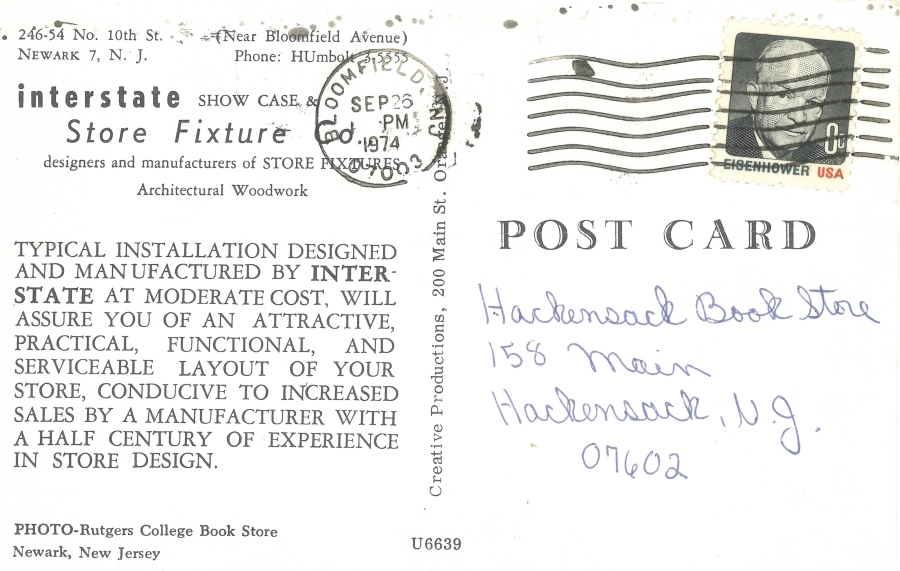 246-54 No. 10th St. (Near Bloomfield Avenue)
Newark 7, N. J. Phone: HUmbolt 3-5555
interstate SHOW CASE &
Store Fixture
designers and manufacturers of STORE FIXTURES
Architectural Woodwork
TYPICAL INSTALLATION DESIGNED
AND MANUFACTURED BY INTER-
STATE AT MODERATE COST, WILL
ASSURE YOU OF AN ATTRACTIVE,
PRACTICAL, FUNCTIONAL, AND
SERVICEABLE LAYOUT OF YOUR
STORE, CONDUCIVE TO INCREASED
SALES BY A MANUFACTURER WITH
A HALF CENTURY OF EXPERIENCE
IN STORE DESIGN.
PHOTO-Rutgers College Book Store
Newark, New Jersey
U6639
Creative Productions, 200 Main St. Orange, N. J.
BLOOMFIELD NJ
SEP 26
PM
1974
07003
EISENHOWER USA
POST CARD
Hackensack Book Store
158 Main
Hackensack, N.J.
07602